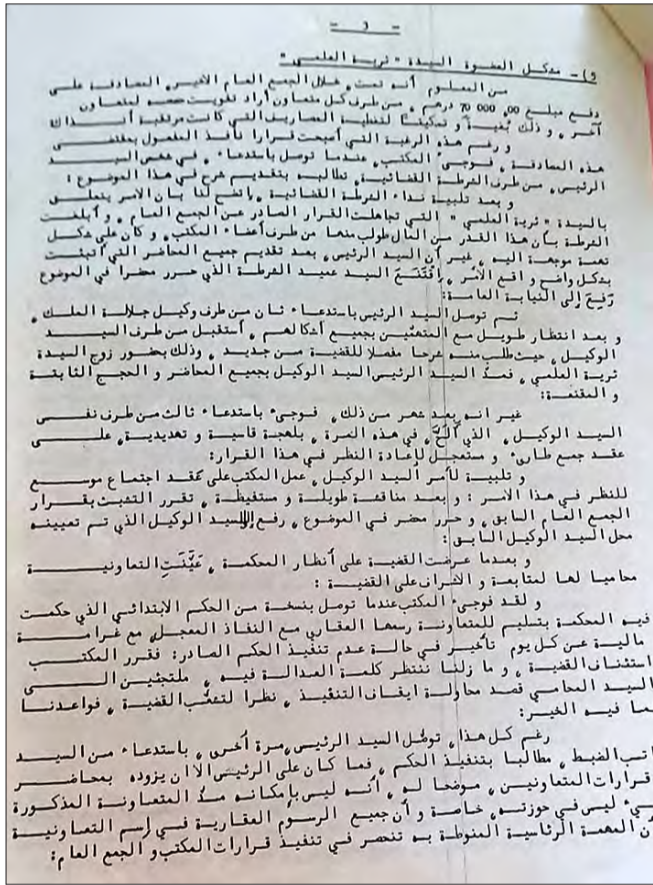 - و -
و)- مشكل العضوة السيدة " ثرية العلمي "
من المعلوم أنه تمت، خلال الجمع العام الأخير، المصادقة على
دفع مبلغ 00، 000 70 درهم، من طرف كل متعاون أراد تفويت حصته لمتعاون
آخر، و ذلك بُغيةً و تمكينًا لتغطية المصاريف التي كانت مرتقبة أنذاك
و رغم هذه الرغبة التي أصبحت قرارا نافذ المفعول بمقتضى
هذه المصادقة، فوجىء المكتب، عندما توصل باستدعاء، في شخص السيد
الرئيس، من طرف الشرطة القضائية، تطالبه بتقديم شرح في هذا الموضوع :
و بعد تلبية نداء الشرطة القضائية، اتضح لنا بأن الامر يتعلق
بالسيدة " ثرية العلمي " التي تجاهلت القرار الصادر عن الجمع العام، و أبلغت
الشرطة بأن هذا القدر من المال طولب منها من طرف أعضاء المكتب، و كأن على شكل
تهمة موجهة اليه، غير أن السيد الرئيس، بعد تقديم جميع المحاضر التي أثبتت
بشكل واضح و اقع الأمر، إقْتَنَعَ السيد عميد الشرطة الذي حرر محضرا في الموضوع
رُفِعَ إلى النيابة العامة:
ثم توصل السيد الرئيس باستدعاء ثان من طرف وكيل جلالة الملك،
و بعد انتظار طويل مع المتهمين بجميع أشكالهم، أستقبل من طرف السيد
الوكيل، حيث طلب منه شرحا مفصلا للقضية من جديد، وذلك بحضور زوج السيدة
ثرية العلمي، فمدَّ السيد الرئيس السيد الوكيل بجميع المحاضر و الحجج الثابتة
و المقنعة:
غير انه بعد شهر من ذلك، فوجىء باستدعاء ثالث من طرف نفس
السيد الوكيل، الذي ألَحَّ، في هذه المرة، بلهجة قاسية و تهديدية، على
عقد جمع طارىء و مستعجل لإعادة النظر في هذا القرار:
و تلبية لأمر السيد الوكيل، عمل المكتب على عقد اجتماع موسع
للنظر في هذا الامر : و بعد مناقشة طويلة و مستفيظة، تقرر التشبث بقرار
الجمع العام السابق، و حُرِّر محضر في الموضوع، رفع للسيد الوكيل الذي تم تعيينه
محل السيد الوكيل السابق :
و بعدما عرضت القضية على أنظار المحكمة، عَيَّنَتِ التعاونية
محاميا لها لمتابعة و الاشراف على القضية :
و لقد فوجىء المكتب عندما توصل بنسخة من الحكم الابتدائي الذي حكمت
فيه المحكمة بتسليم للمتعاونة رسمها العقاري مع النفاذ المعجل، مع غرامة
مالية عن كل يوم تأخير في حالة عدم تنفيذ الحكم الصادر: فقرر المكتب
استئناف القضية، و ما زلنا ننتظر كلمة العدالة فيه، ملتجئين الى
السيد المحامي قصد محاولة ايقاف التنفيذ، نظرا لتشعُّب القضية، فواعدنا
بما فيه الخير:
رغم كل هذا، توصَّل السيد الرئيس، مرة أخرى، باستدعاء من السيد
اتب الضبط، مطالبا بتنفيذ الحكم، فما كان على الرئيس الا ان يزوده بمحاضر
قرارات المتعاونين، موضحا له، أنه ليس بإمكانه مدَّ المتعاونة المذكورة
ىء ليس في حوزته، خاصة و أن جميع الرسوم العقارية في إسم التعاونية
أن المهمة الرئاسية المنوطة به تنحصر في تنفيذ قرارات المكتب و الجمع العام: